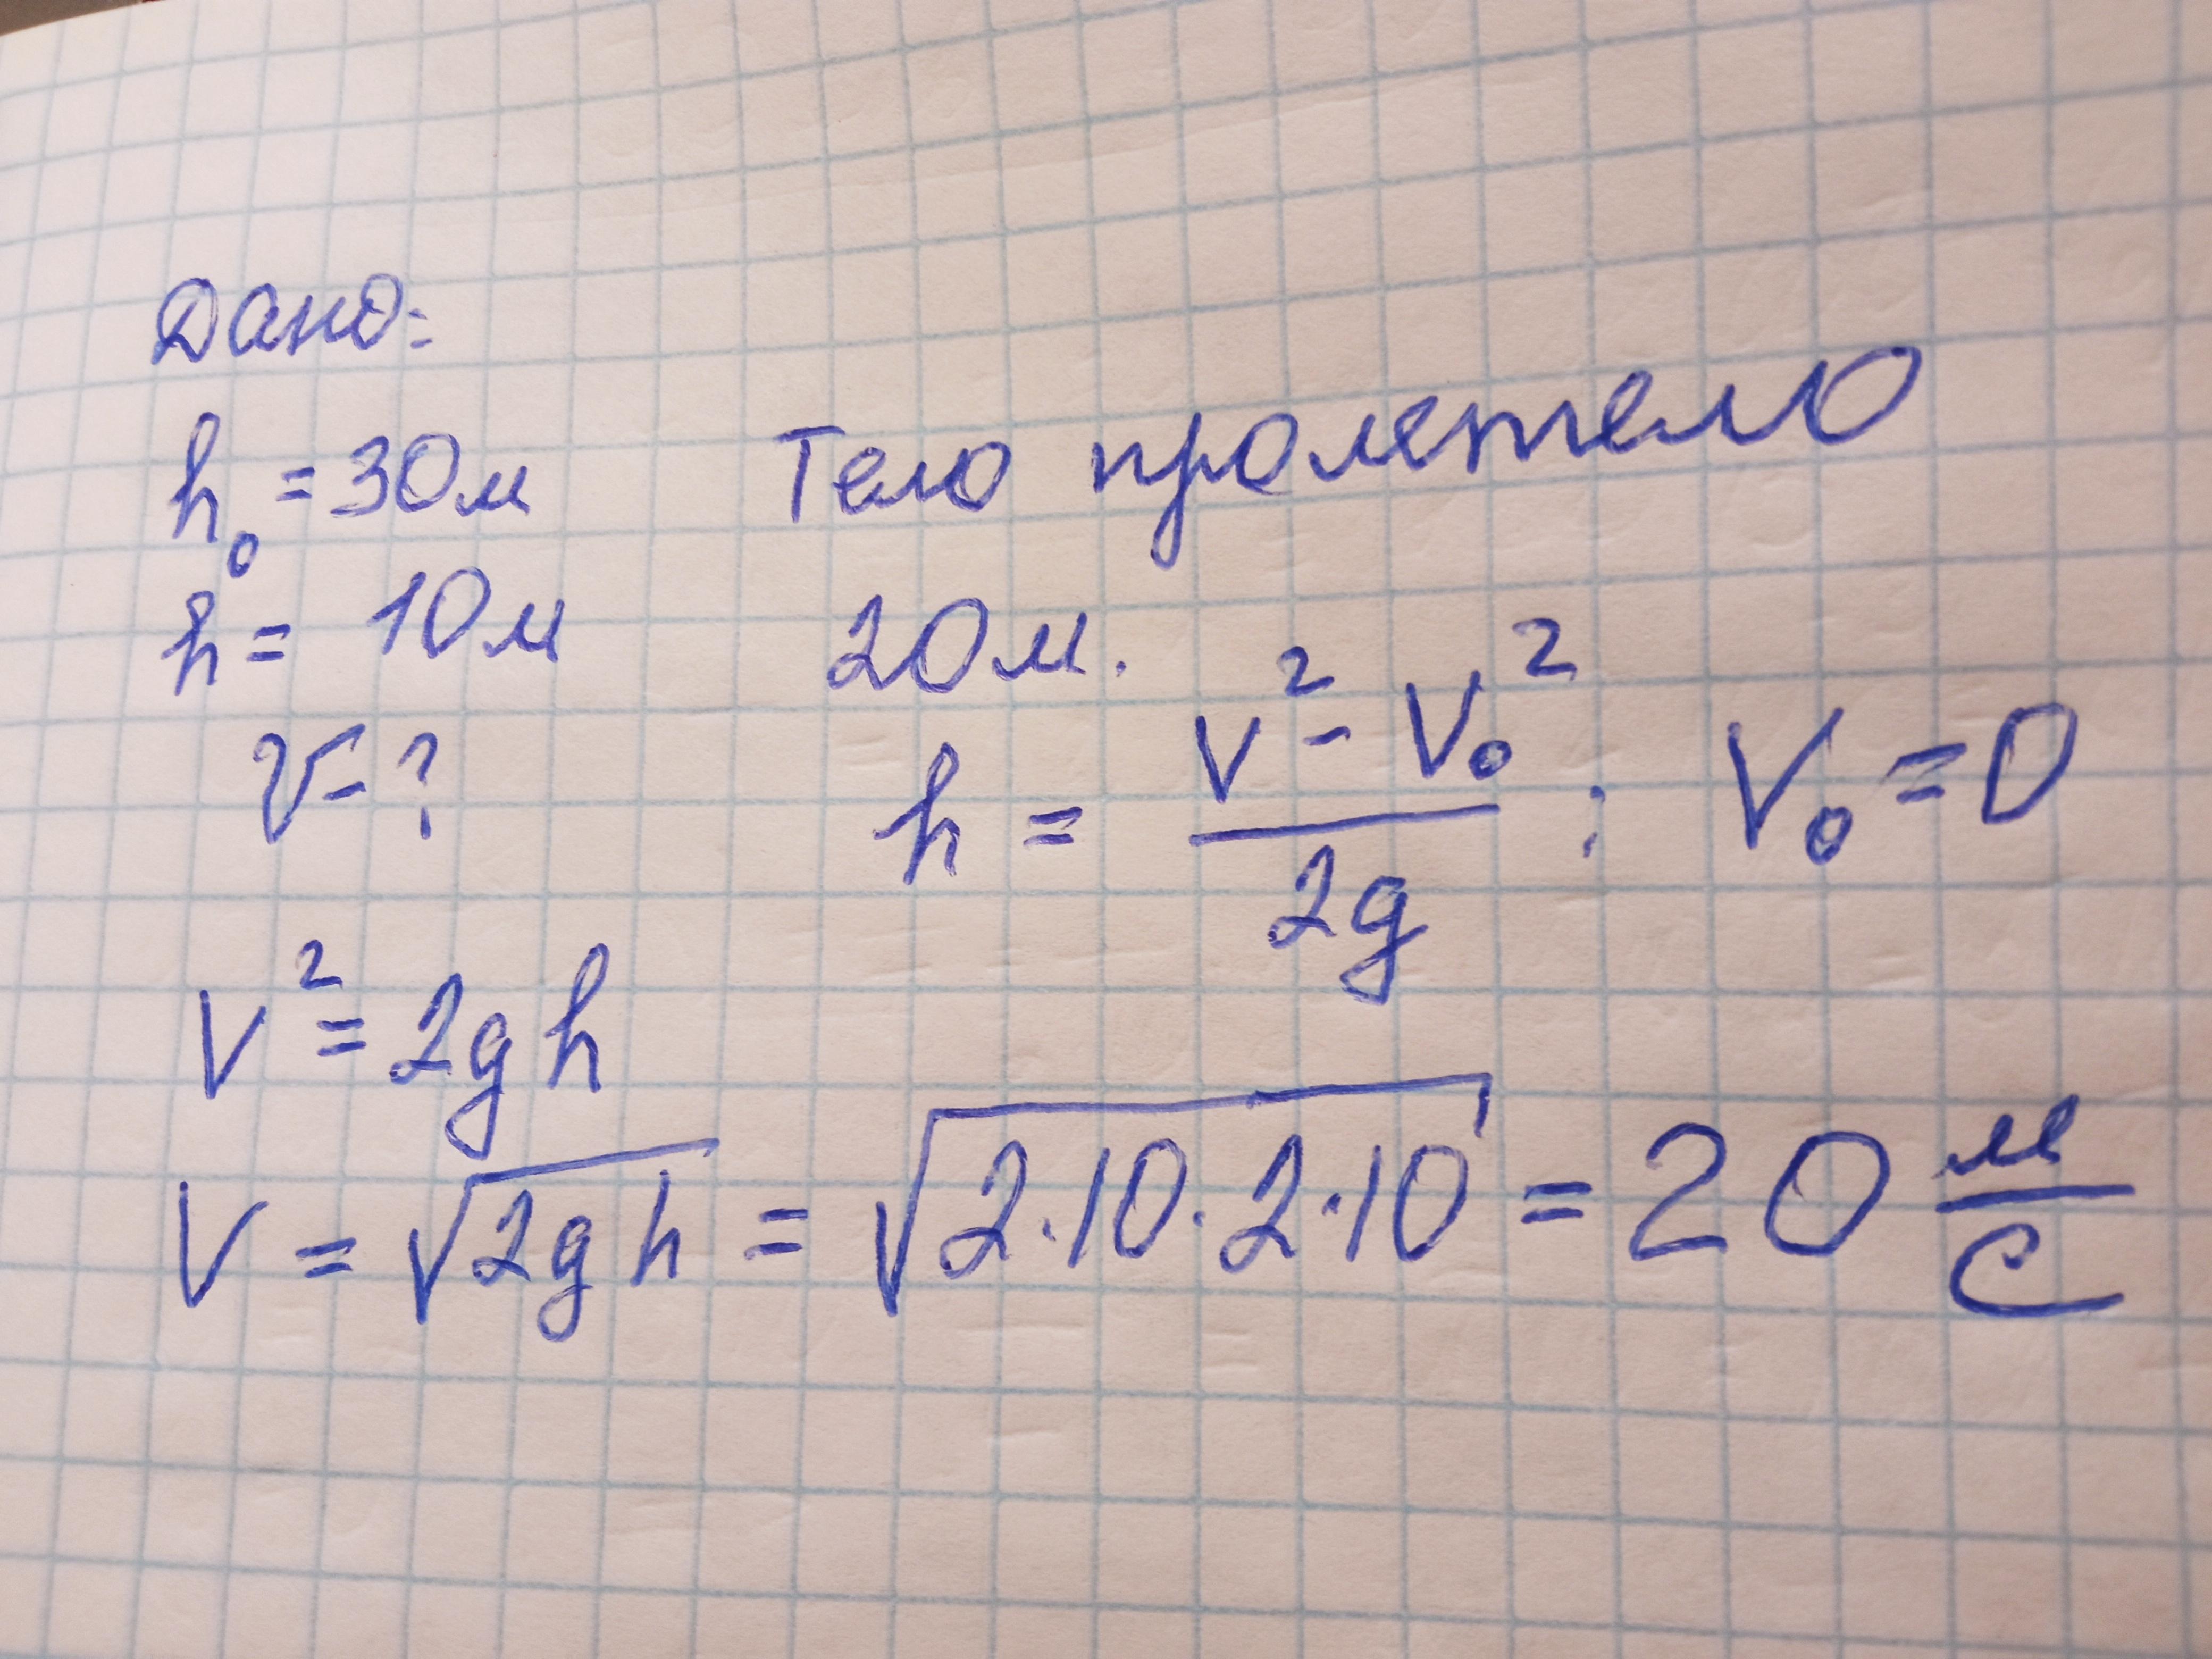 Дано:
h₀ = 30м
h = 10м
v - ?
Тело пролетело
20м.
h = (v² - v₀²) / 2g ; v₀ = 0
v² = 2gh
v = √2gh = √2·10·2·10 = 20 м/с